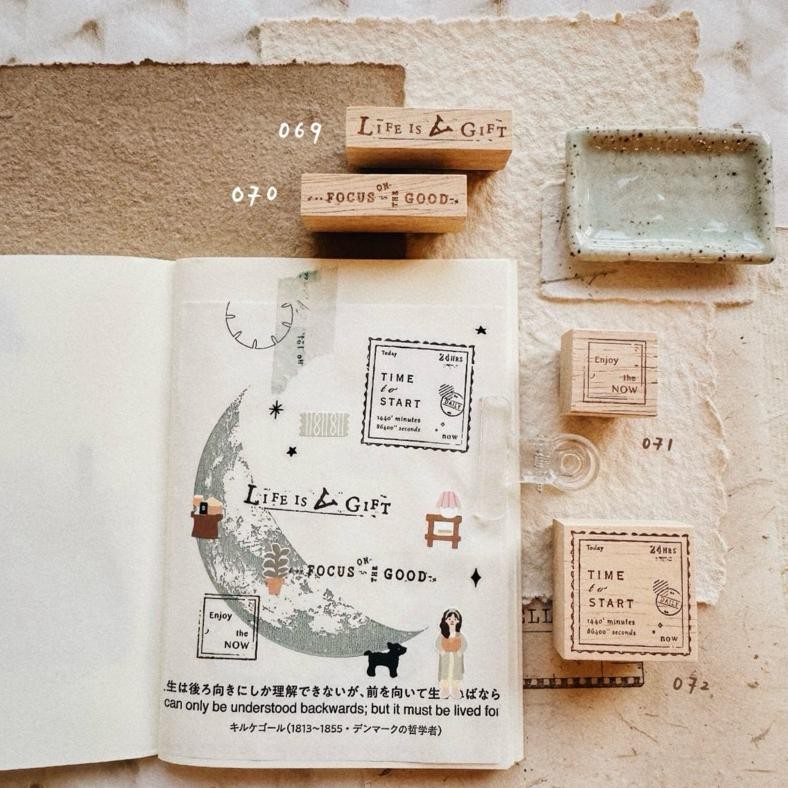 069
LIFE IS A GIFT
070
...FOCUS ON THE GOOD
Nº 124.
Today
24HRS
TIME
to
START
DAILY
1440' minutes
86400" seconds
now
Enjoy
the
NOW
071
LIFE IS A GIFT
...FOCUS ON THE GOOD
Enjoy
the
NOW
Today
24HRS
TIME
to
START
DAILY
1440' minutes
86400" seconds
now
072
生は後ろ向きにしか理解できないが、前を向いて生 ばなら
can only be understood backwards; but it must be lived for
キルケゴール(1813~1855・デンマークの哲学者)